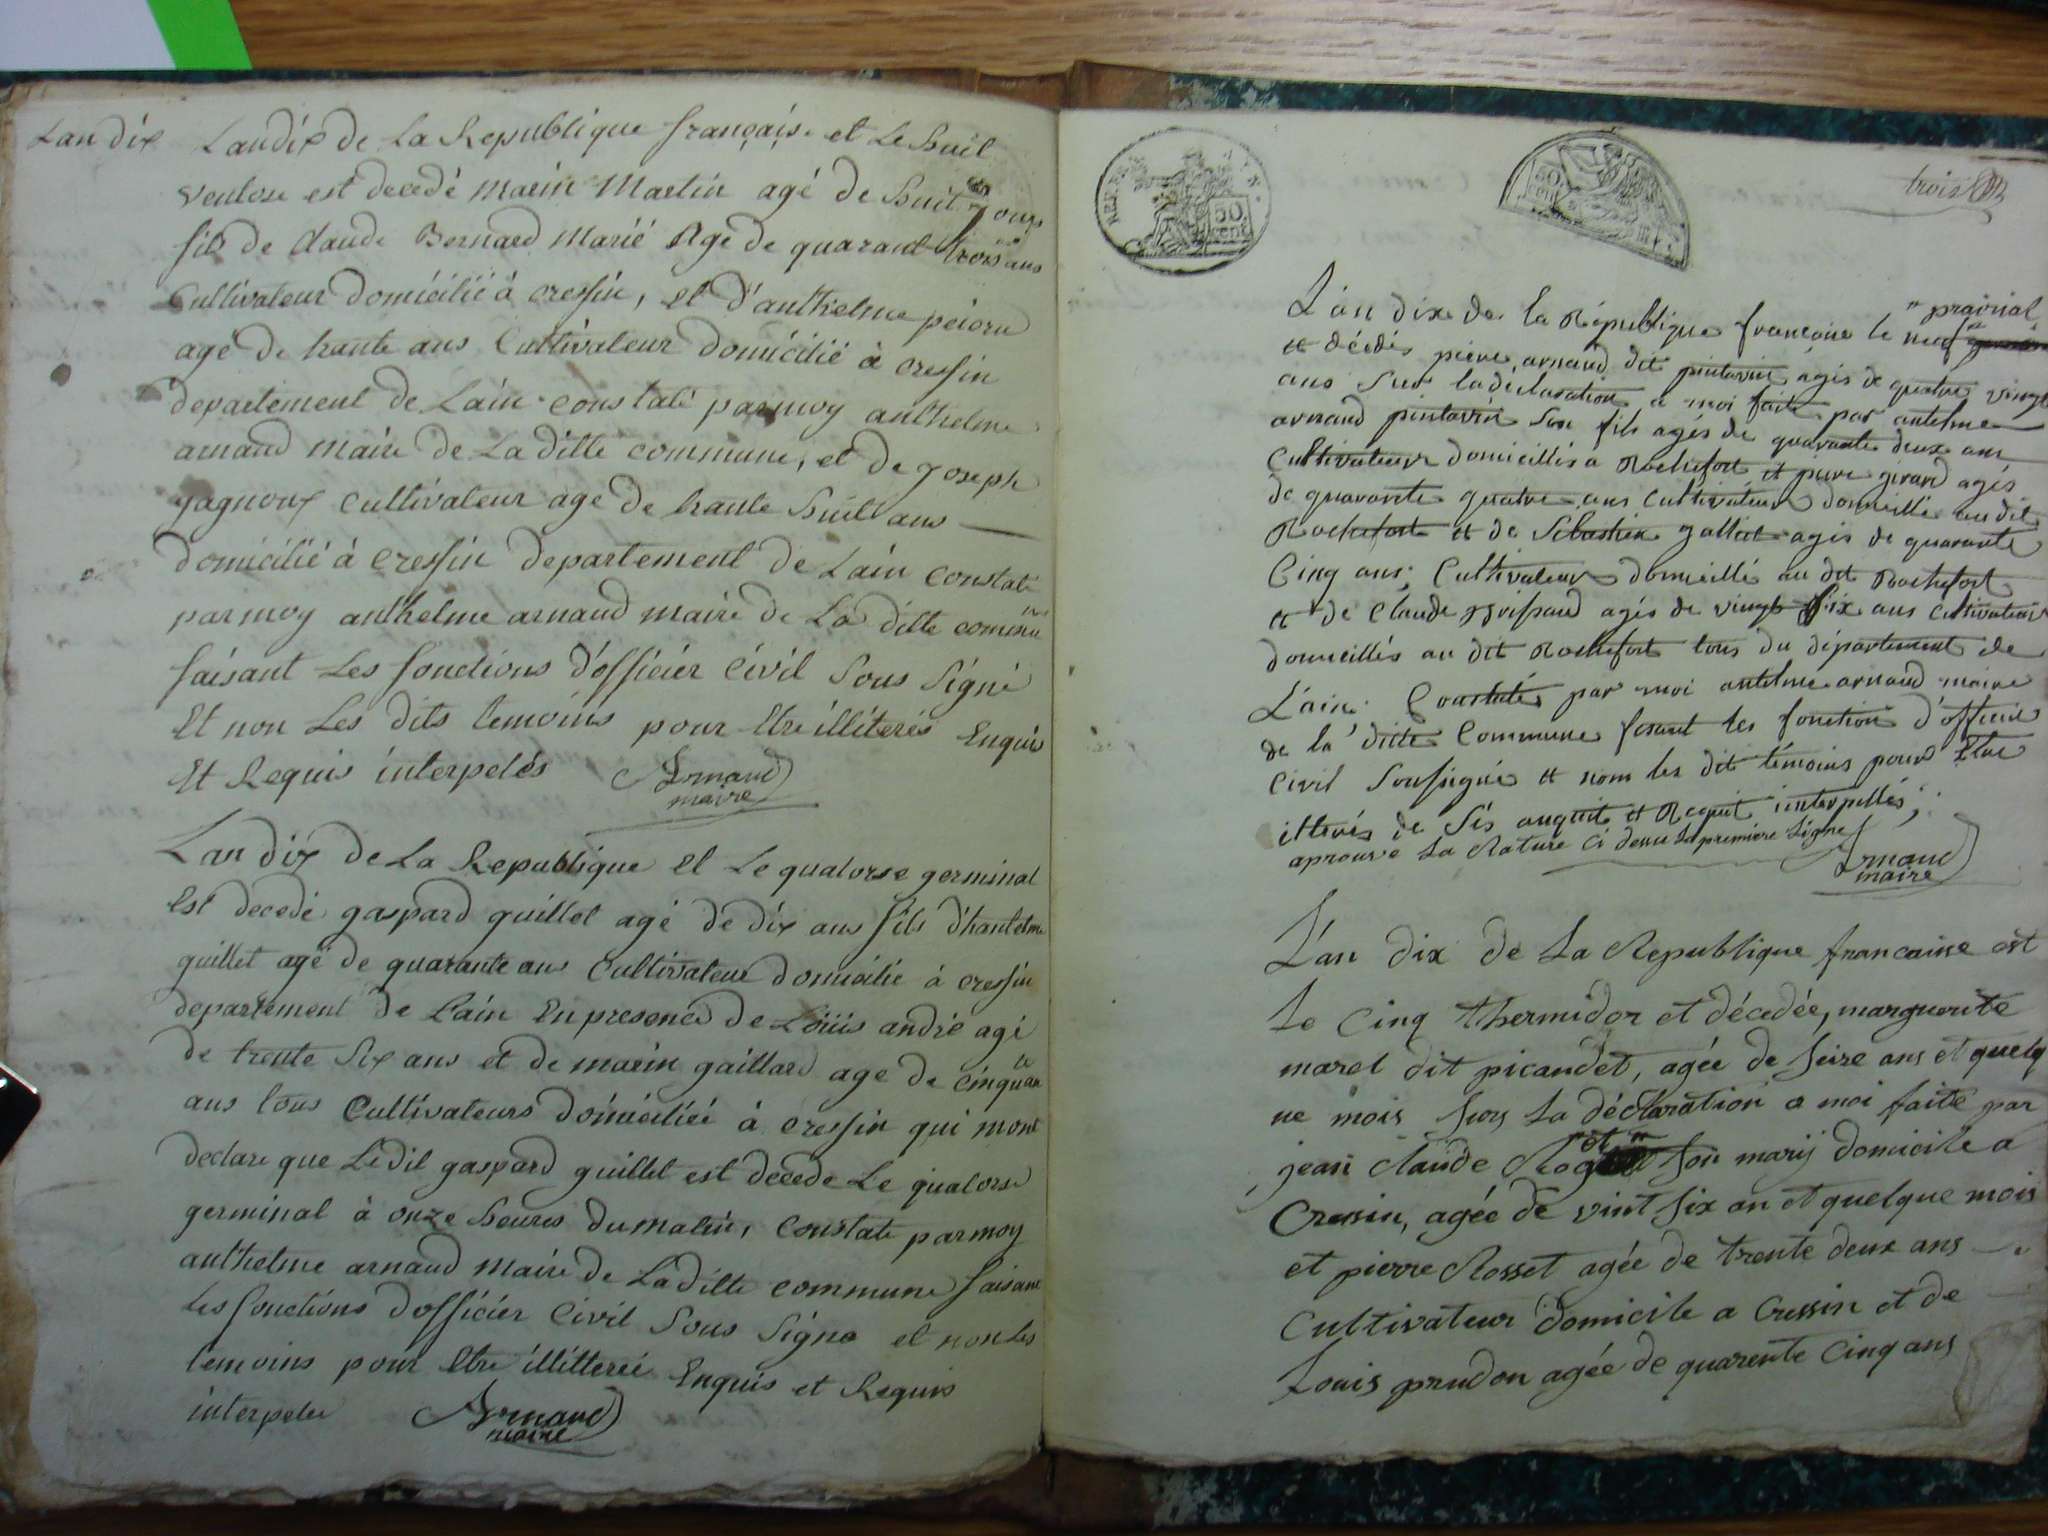 Lan dix
Landix de La Republique français. et Le huit
ventose est decedé marin Martin agé de huit jours
fils de Claude Bernard Marié Agé de quarante trois ans
Cultivateur domicilié à cressin, et d'anthelme
agé de trante ans Cultivateur domicilié à cressin
departement de Lain constaté parmoy anthelme
arnaud maire de La ditte commune, et de joseph
gagnoux cultivateur age de trante huit ans
domicilié à cressin departement de Lain constaté
parmoy anthelme arnaud maire de La ditte comune
faisant Les fonctions d'officier Civil Sous Signé
Et non Les dits temoins pour Etre illiterés Enquis
Et Requis interpelés Arnaud
maire
Lan dix de La Republique et Le quatorse germinal
Est decedé gaspard guillet agé de dix ans fils d'hantelme
guillet agé de quarante ans Cultivateur domicilié à cressin
departement de Lain En presence de Loüis andré agé
de trente six ans et de marin gaillard age de cinquante
ans tous Cultivateurs domiciliéé à cressin qui mont
declaré que Le dit gaspard guillet est decede Le quatorse
germinal à onze heures du matin, Constaté parmoy
anthelme arnaud maire de La ditte commune faisant
Les fonctions d'officier Civil Sous Signe et non les
temoins pour Etre illitterée Enquis et Requis
interpelés Arnaud
maire
REP. FRA.
50.
cent.
50.
cent
trois
" prairial
L'an dix de la République francaise le neuf
et décédés pierre arnaud dit pintavin agés de quatre vingt
ans sur la declaration a moi faite par antelme
arnaud pintavin son fils agés de quarante deux ans
Cultivateur domicillés a Rochefort et pierre girard agés
de quarante quatre ans Cultivateur domicillé au dit
Rochefort et de Sebastien galliet agés de quarante
Cinq ans, Cultivateur domicillé au dit Rochefort
et de Claude agés de vingt six ans cultivateur
domicillés au dit Rochefort tous du département de
L'ain. Constatés par moi antelme arnaud maire
de la ditte Commune fesant les fonction d'officier
Civil soussigné et nom les dit témoins pour Etre
illerés de Sés anquit et Requit interpellés;
aprouve La Rature Ci dessu La premiere Ligne
Arnaud
maire
L'an dix de La Republique francaise est
Le Cinq thermidor et décedée, marguerite
marel dit picandet, agée de seize ans et quelq
ue mois surs La déclaration a moi faite par
et
jean Claude son marij domicile a
Cressin, agée de vint six an et quelque mois
et pierre Rosset agée de trente deux ans
Cultivateur domicile a Cressin et de
Louis prudon agée de quarente Cinq ans